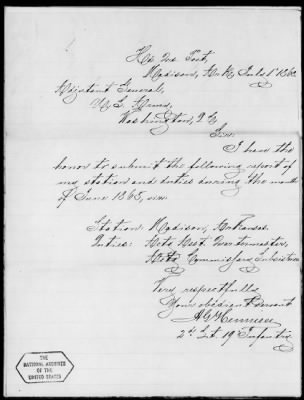 Hd. Qrs. Post,
Madison, Ark. July 1st 1868
Adjutant General,
U.S. Army,
Washington, D.C.
Sir:
I have the
honor to submit the following report of
my station and duties during the month
of June 1868, viz:
Station: Madison, Arkansas.
Duties: Actg Asst. Quartermaster,
Actg Commissary Subsistence
Very respectfully
Your obedient Servant
2nd Lt. 19 Infantry
THE
NATIONAL ARCHIVES
OF THE
UNITED STATES